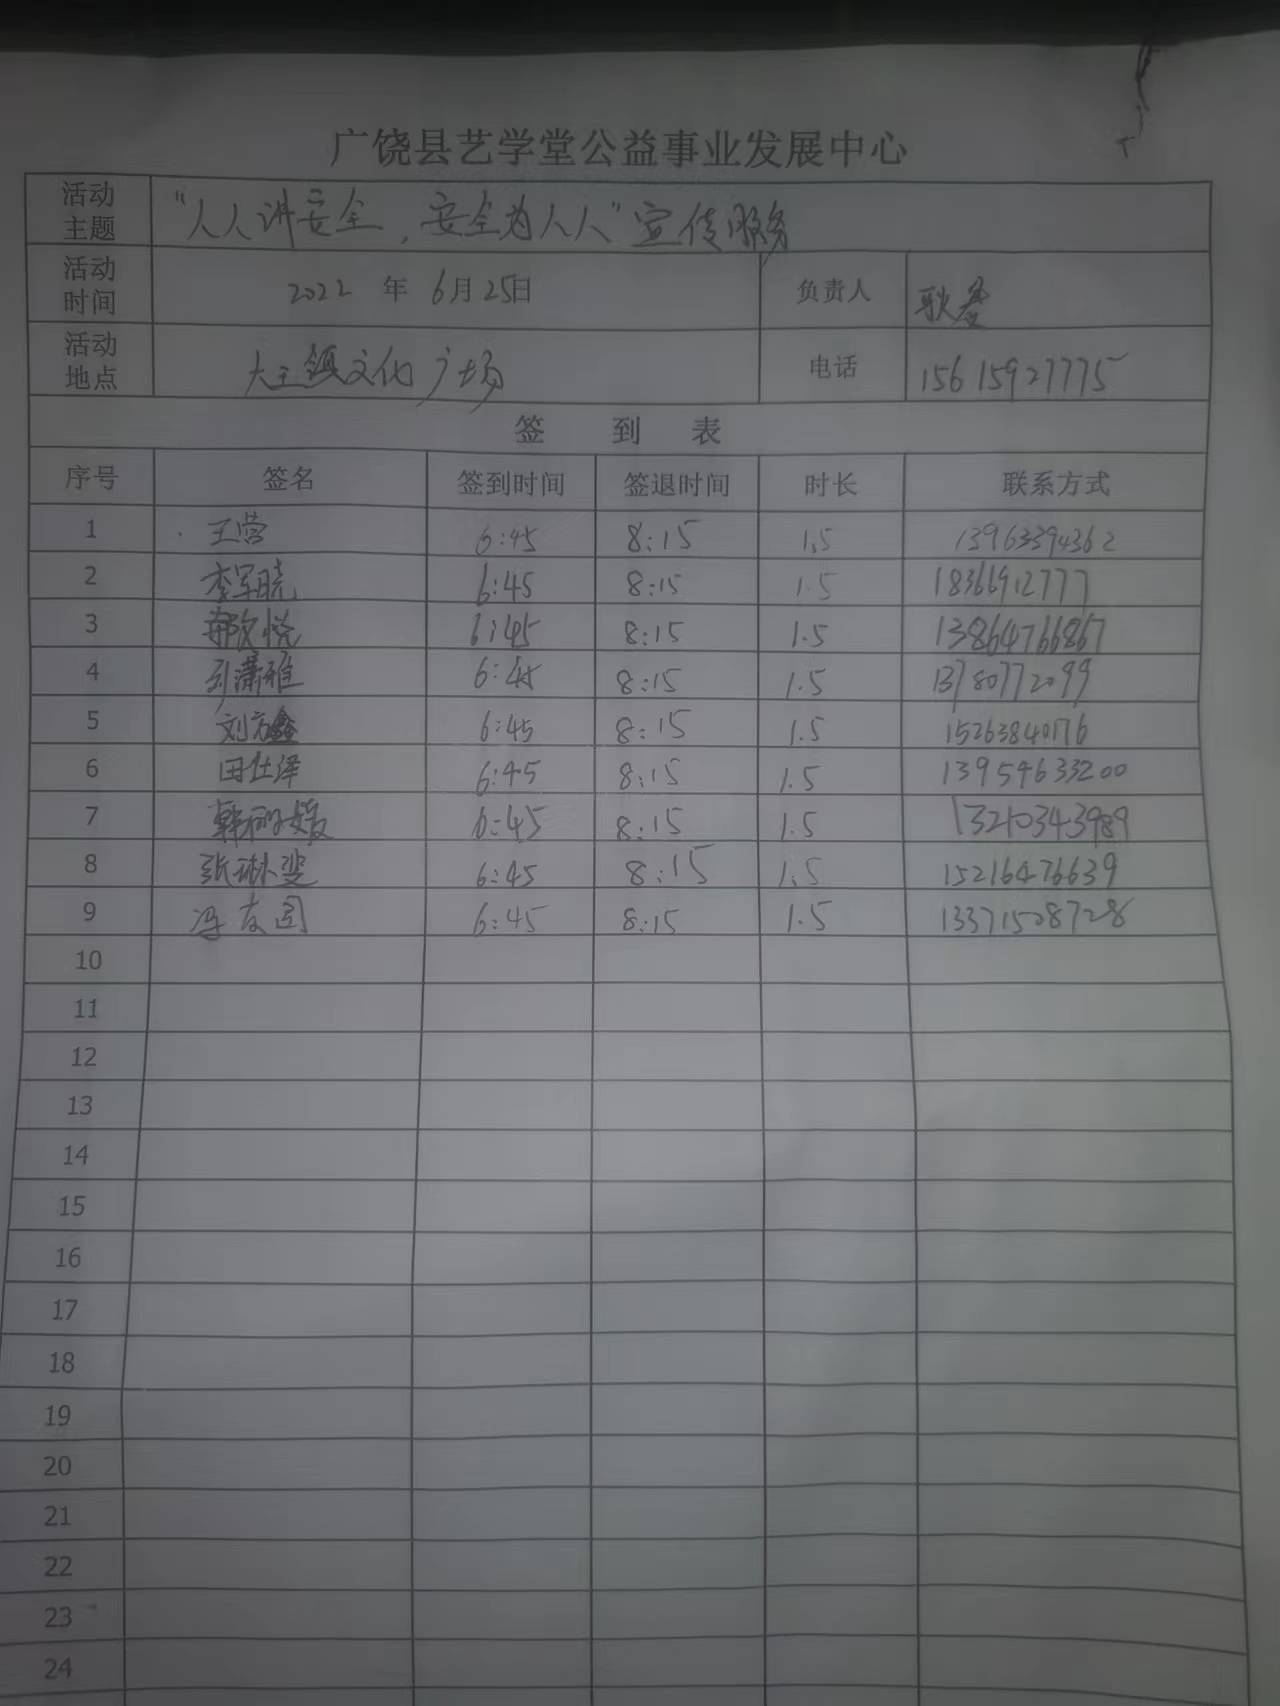 广饶县艺学堂公益事业发展中心
活动主题 "人人讲安全,安全为人人"宣传服务
活动时间 2022 年 6月25日 负责人 耿
活动地点 大王镇文化广场 电话 15615927775
签 到 表
序号 签名 签到时间 签退时间 时长 联系方式
1 王营 6:45 8:15 1.5 13963394362
2 李军晓 6:45 8:15 1.5 18366912777
3 悦 6:45 8:15 1.5 13864766867
4 潇雅 6:45 8:15 1.5 13780772099
5 刘方鑫 6:45 8:15 1.5 15263840176
6 田仕泽 6:45 8:15 1.5 13954633200
7 韩丽媛 6:45 8:15 1.5 13210343989
8 张琳斐 6:45 8:15 1.5 15216476639
9 冯友国 6:45 8:15 1.5 13371508728
10
11
12
13
14
15
16
17
18
19
20
21
22
23
24